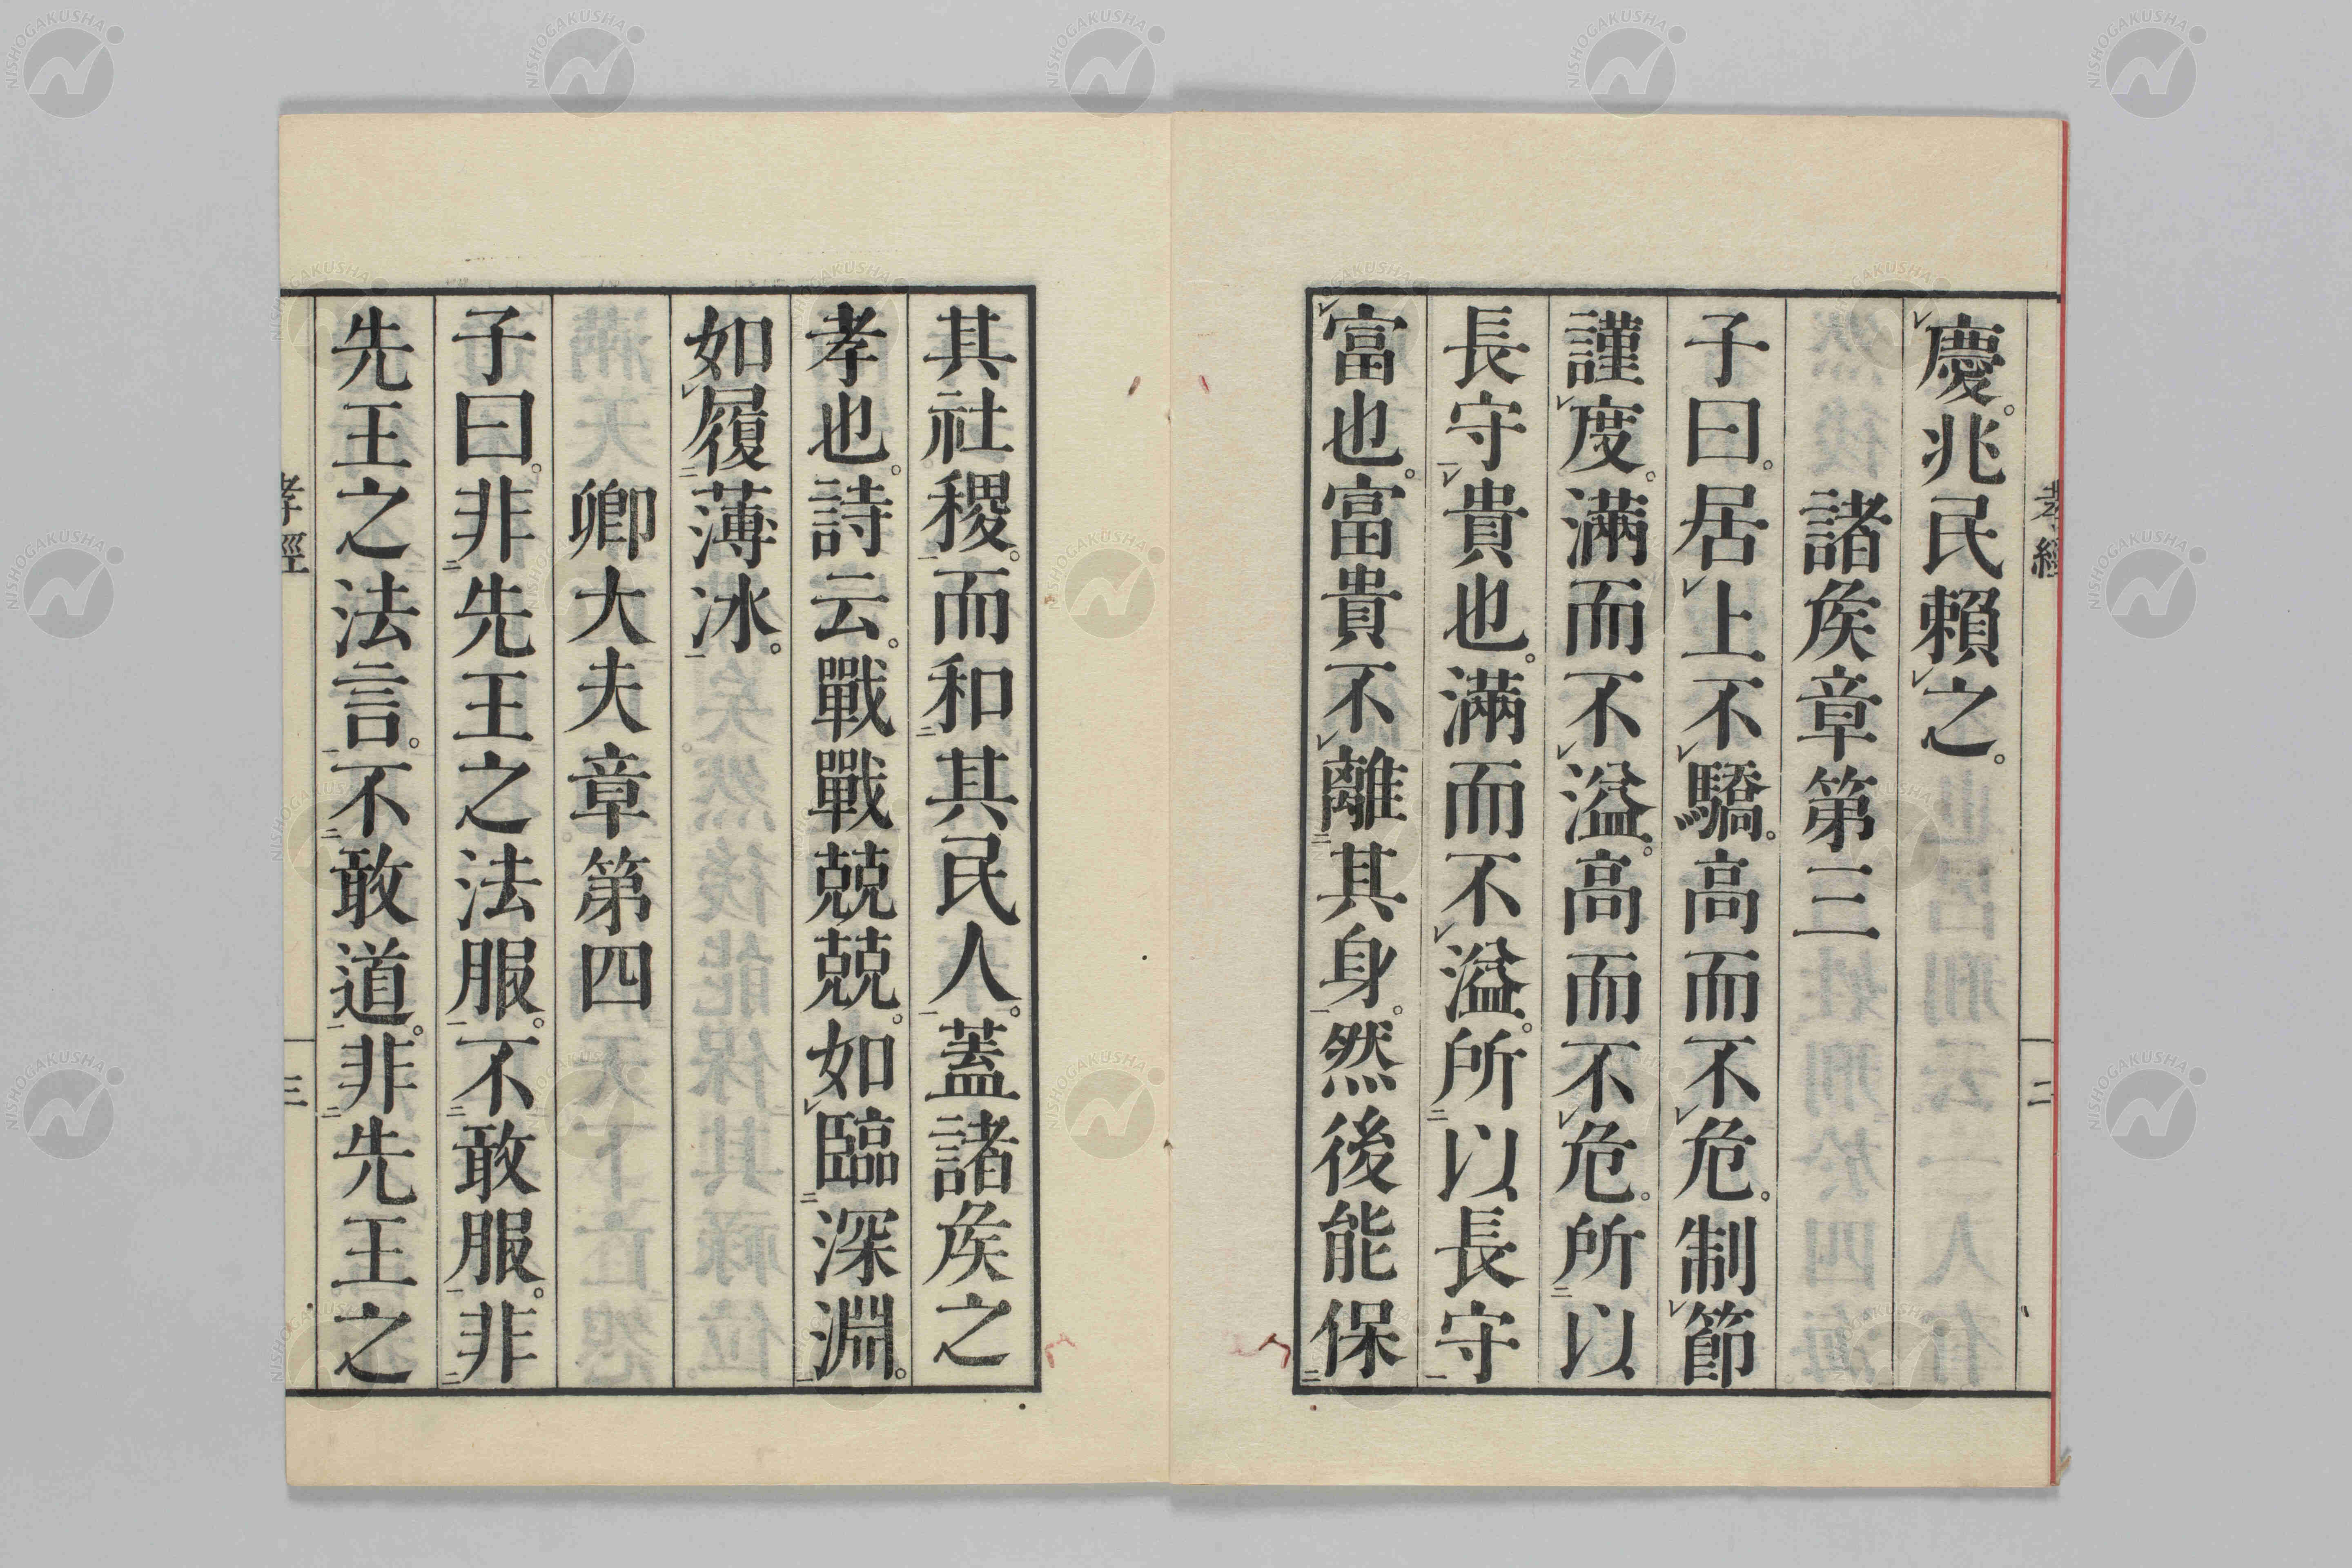 孝經
二
慶。兆民賴之。
諸矦章第三
子曰。居上不驕。高而不危。制節
謹度。滿而不溢。高而不危。所以
長守貴也。滿而不溢。所以長守
富也。富貴不離其身。然後能保
其社稷。而和其民人。蓋諸矦之
孝也。詩云。戰戰兢兢。如臨深淵。
如履薄冰。
卿大夫章第四
子曰。非先王之法服。不敢服。非
先王之法言。不敢道。非先王之
孝經
三
NISHOGAKUSHA